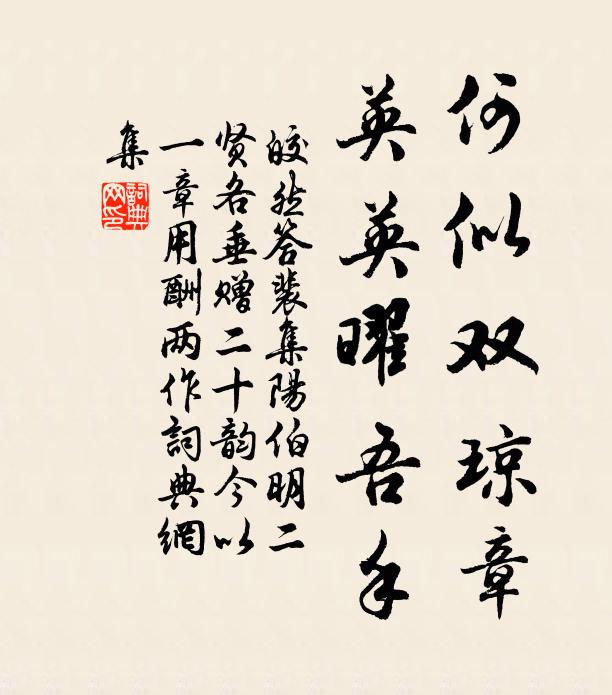 何似双琼章
英英曜吾手
皎然答裴集陽伯明二
贤各垂赠二十韵今以
一章用酬两作詞典網
集
詞典
网印